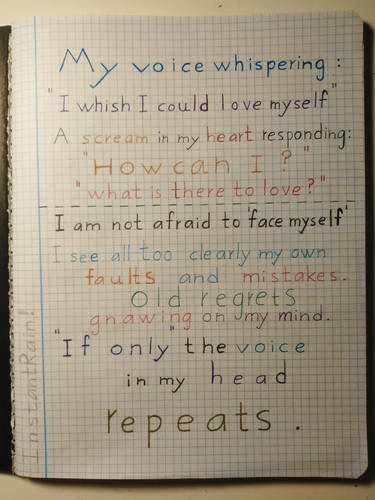 My voice whispering:
"I whish I could love myself"
A scream in my heart responding:
"How can I?"
"what is there to love?"
I am not afraid to 'face myself'
I see all too clearly my own
faults and mistakes.
Old regrets
gnawing on my mind.
"If only" the voice
in my head
repeats.
InstantRain!